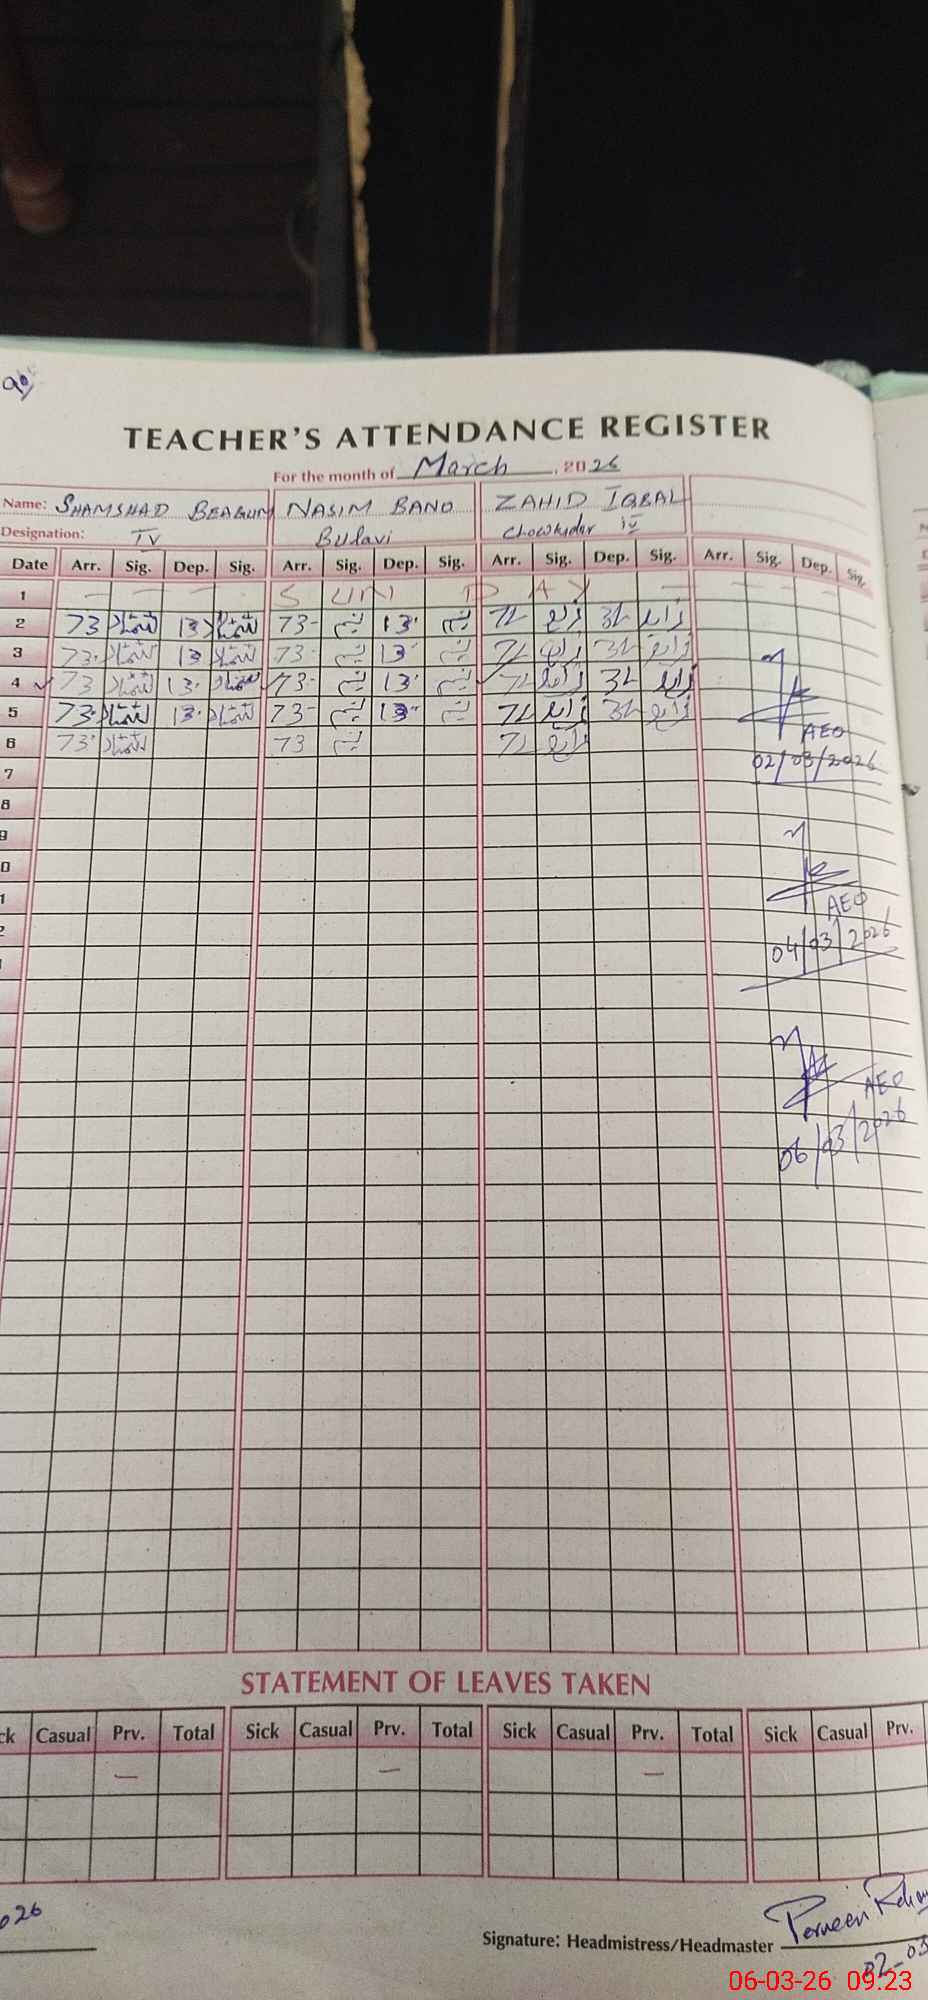 TEACHER'S ATTENDANCE REGISTER
For the month of March, 2026
Name: SHAMSHAD BEAGUM NASIM BANO ZAHID IQBAL
Designation: IV Bulavi Chowkidar IV
Date Arr. Sig. Dep. Sig. Arr. Sig. Dep. Sig. Arr. Sig. Dep. Sig. Arr. Sig. Dep. Sig.
1 — — — — S U N D A Y — — —
2 73 شمشاد 13 شمشاد 73 نسیم 13 نسیم زاہد زاہد
3 73 شمشاد 13 شمشاد 73 نسیم 13 نسیم زاہد زاہد
4 73 شمشاد 13 شمشاد 73 نسیم 13 نسیم زاہد زاہد
5 73 شمشاد 13 شمشاد 73 نسیم 13 نسیم زاہد زاہد
6 73 شمشاد 73 نسیم زاہد
AEO
7
02/03/2026
8
9
0
1
AEO
2
04/03/2026
AEO
06/03/2026
STATEMENT OF LEAVES TAKEN
ck Casual Prv. Total Sick Casual Prv. Total Sick Casual Prv. Total Sick Casual Prv.
— — —
026
Signature: Headmistress/Headmaster Perveen
02-03
06-03-26 09:23